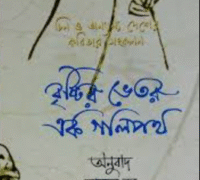 চিন ও অন্যান্য দেশের
কবিতার সংকলন
বৃষ্টির ভেতর
এক গলিপথ
অনুবাদ